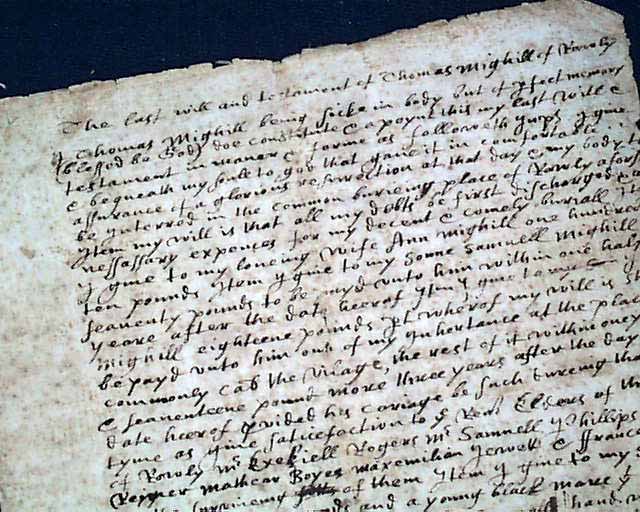 The last will and testament of Thomas Mighill of Rowly
I Thomas Mighill being sicke in body but of pfect memory
blessed be God doe constitute & apoynt this my last will &
testament in maner & forme as followeth Imps I giue
& bequeath my soule to god that gaue it in comfortable
assurance of a glorious resurrection at that day & my body t
be ynterred in the common burieing place of Rowly afors
Item my will is that all my debts be first discharged &
nessassary expences for my decent & comely buriall
y giue to my loueing wife Ann Mighill one hundred
ten pounds Item y giue to my sonne Samuell Mighill
seauenty pounds to be payd vnto him within one half
yeare after the date heerof Item y giue to my
Mighill eighteene pounds pt wherof my will is
be payd vnto him out of my ynheritance at the pla
commonly cald the village, the rest of it within one y
& seauenteene pound more three yeares after the day
date heer of pvided his cariage be such dureing tha
tyme as giue satisfaction to ye Reud Elders of th
of Rowly Mr Ezekiell Rogers Mr Samuell Phillips
Rayner Mathew Boyes maxemilian Jewett & ffranc
the survivieing of them Item y giue to my
and a young black mare y
hand